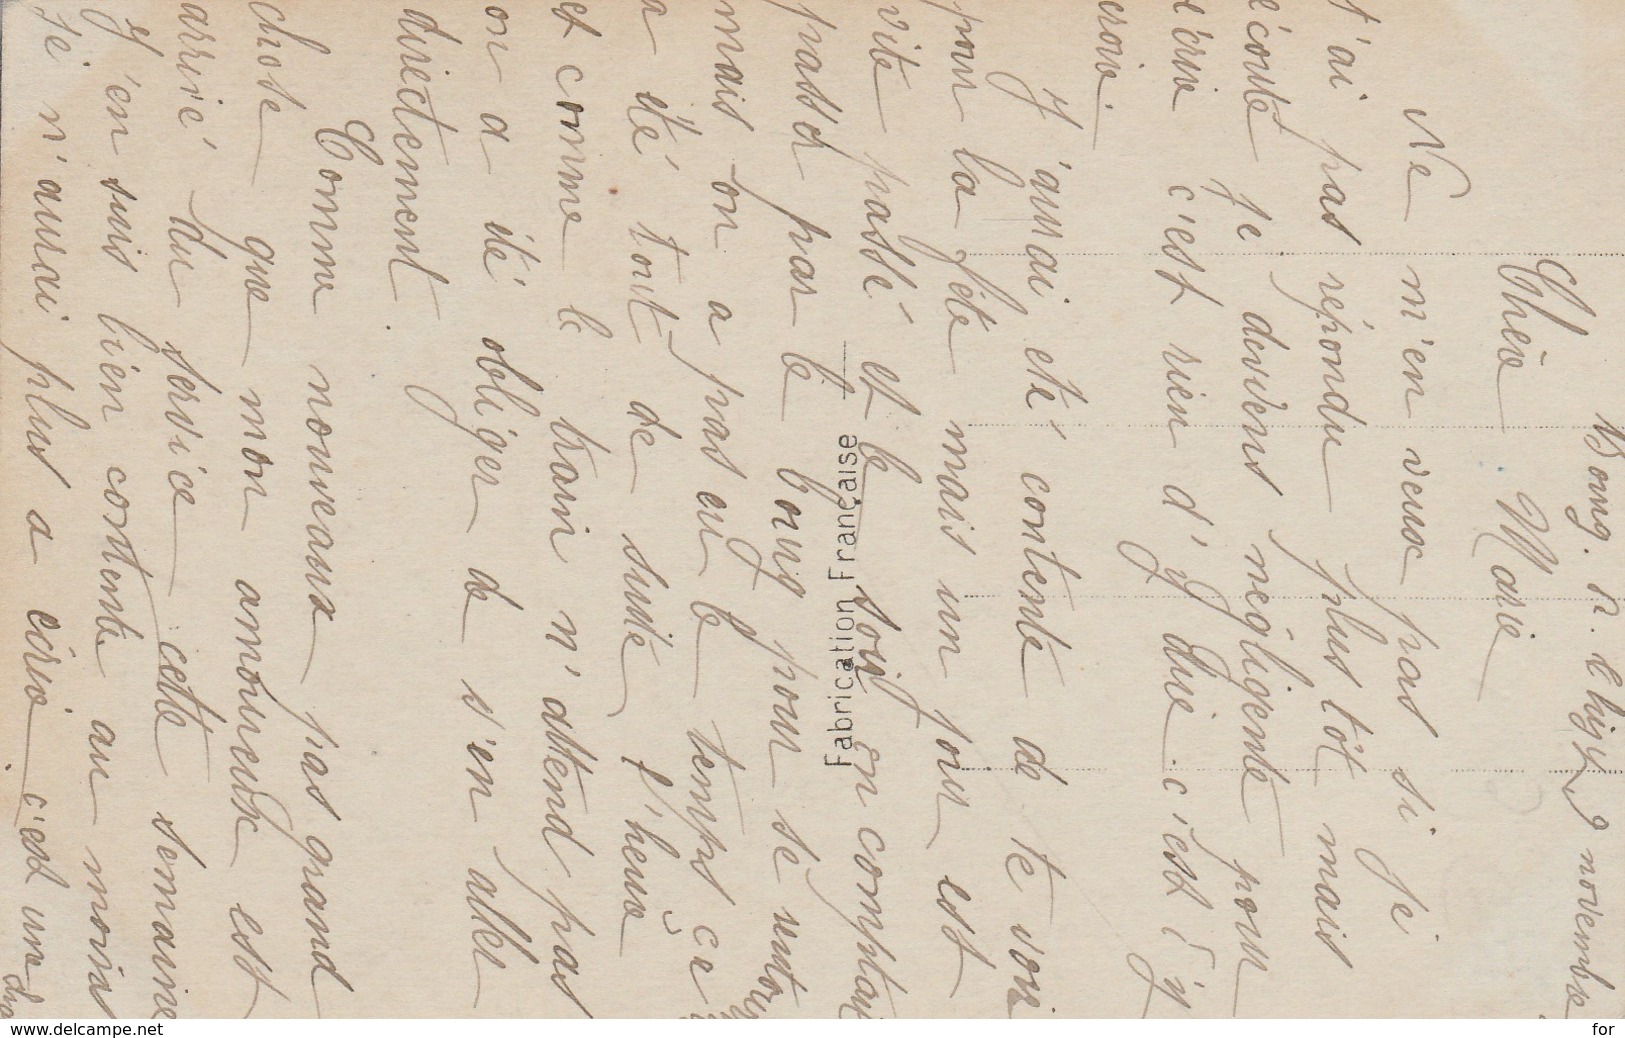 Bourg. n. 9 novembre
Chère Marie
Ne m'en veux pas si je
t'ai pas répondu plus tôt mais
écoute je deviens négligente pour
écrire c'est rien d'y dire c'est i y
croire.
J'aurai été contente de te voir
pour la fête mais un jour est
vite passé et le soir en comptait
passer par le bourg pour se
mais on a pas eu le temps ce
a été tout de suite l'heure
et comme le train n'attend pas
on a été obliger de s'en aller
directement.
Comme nouveaux pas grand
chose que mon amoureux est
arrivé du service cette semaine
j'en suis bien contente au moins
je n'aurai plus a écrire c'est une
Fabrication Française
www.delcampe.net
for